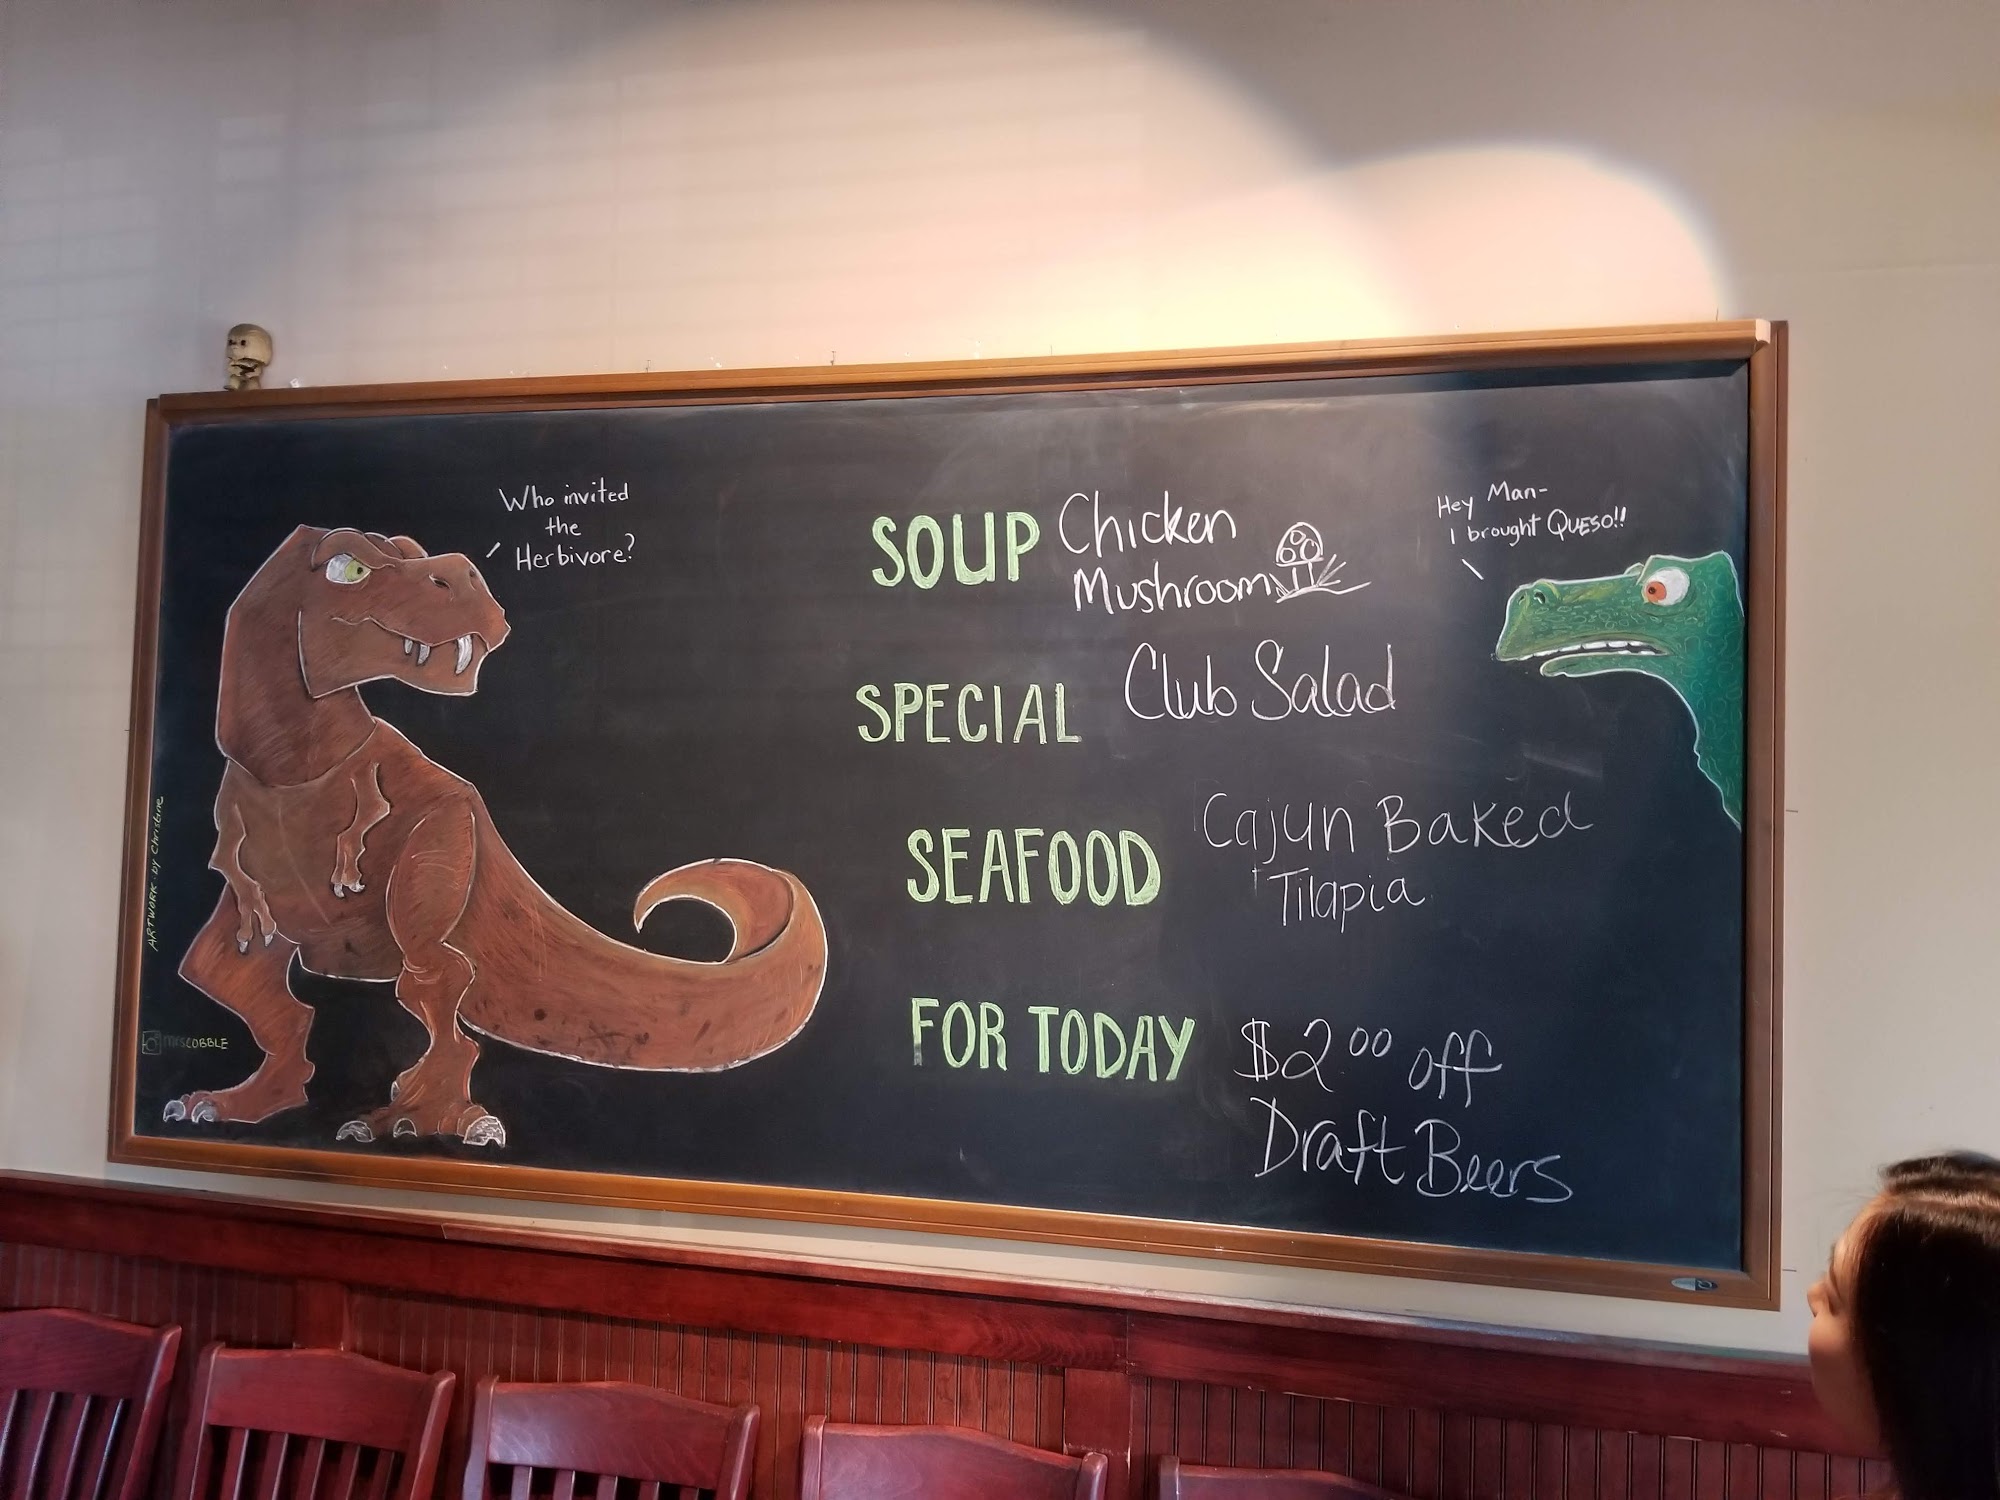 Who invited
the
Herbivore?
SOUP
Chicken
Mushroom
Hey Man-
I brought QUESO!!
SPECIAL
Club Salad
SEAFOOD
Cajun Baked
Tilapia
FOR TODAY
$2.00 off
Draft Beers
ARTWORK by Christine
mrsCOBBLE